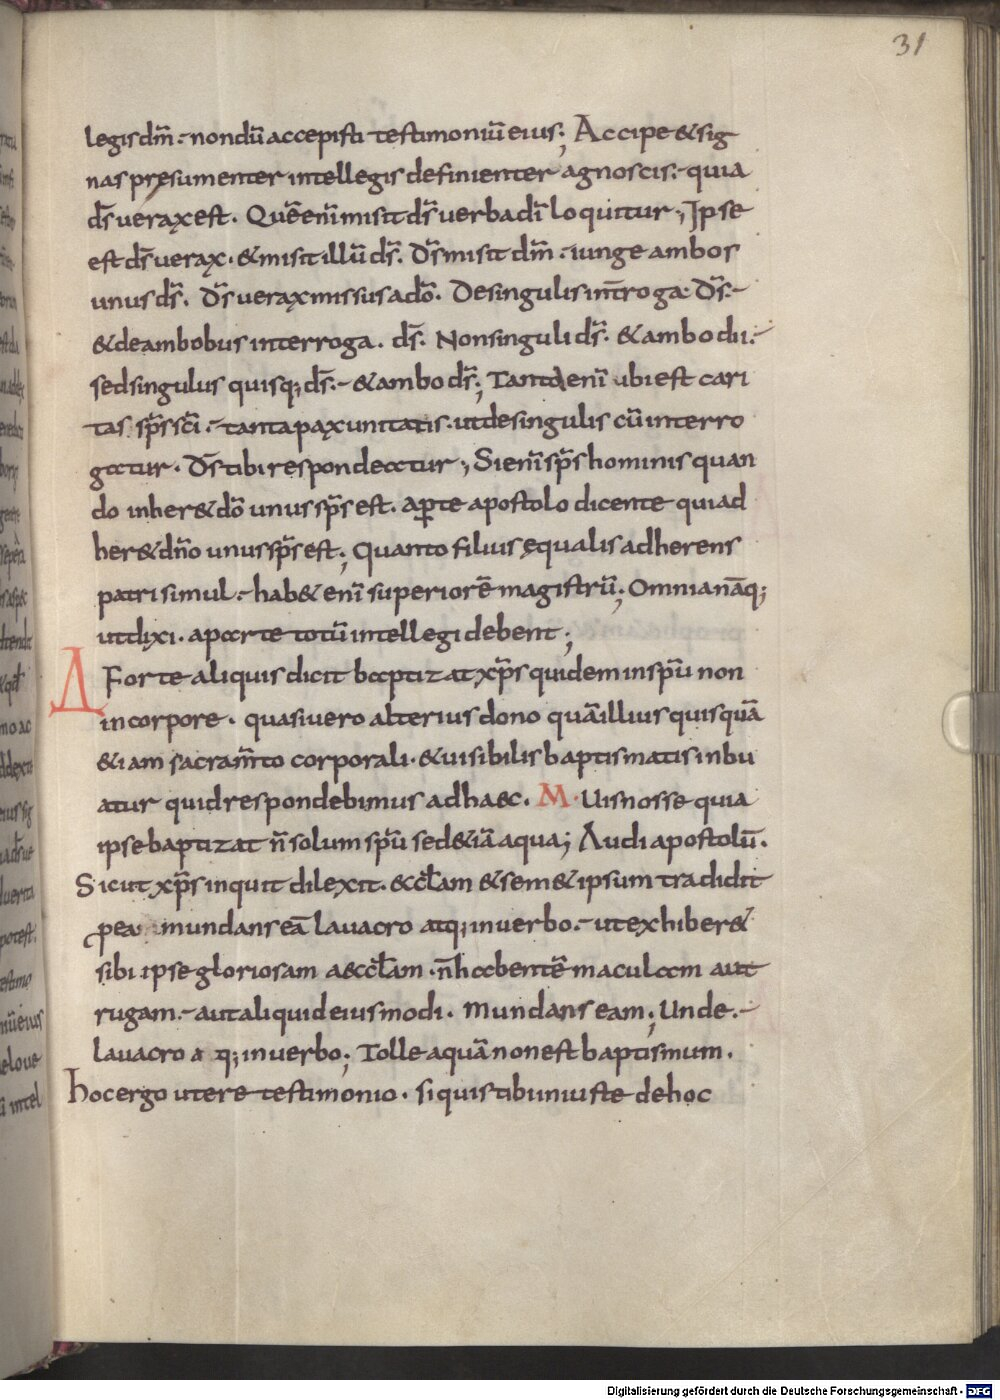 31
legis dm̄ .- nondū accepisti testimoniū eius; Accipe & sig
nas presumenter intellegis definienter agnoscis .- quia
ds̄ uerax est. Quē enī misit ds̄ uerba dī loquitur; Ipse
est ds̄ uerax. & misit illū ds̄. Ds̄ misit dm̄ .- iunge ambos
unus ds̄. Ds̄ uerax missus a dō. De singulis int̄roga ds̄ .-
& de ambobus interroga. ds̄. Non singuli ds̄. & ambo dii .-
sed singulus quisq; ds̄ .- & ambo ds̄; Tanta enī ubi est cari
tas sp̄s sc̄i .- tanta pax unitatis. ut de singulis cū interro
gatur. Ds̄ tibi respondeatur; Si enī sp̄s hominis quan
do inher& dō unus sp̄s est. aperte apostolo dicente qui ad
her& dn̄o unus sp̄s est; Quanto filius ęqualis adherens
patri simul .- hab& enī superiorē magistrū; Omnia nāq;
ut dixi. aparte totū intellegi debent;
Δ Forte aliquis dicit baptizat xp̄s quidem in sp̄u non
in corpore. quasi uero alterius dono quā illius quisquā
& iam sacram̄to corporali. & uisibilis baptismatis inbu
atur quid respondebimus ad haec. M. Uis nosse quia
ipse baptizat n̄ solum sp̄u sed & iā aqua; Audi apostolū.
Sicut xp̄s inquit dilexit. & eccl̄am & sem& ipsum tradidit
p ea mundans eā lauacro atq; in uerbo .- ut exhiber&
sibi ipse gloriosam aeccl̄am. n̄ habentē maculam aut
rugam .- aut aliquid eiusmodi. Mundans eam; Unde .-
lauacro a q; in uerbo; Tolle aquā non est baptismum.
Hoc ergo utere testimonio. si quis tibi iniuste de hoc
Digitalisierung gefördert durch die Deutsche Forschungsgemeinschaft - DFG